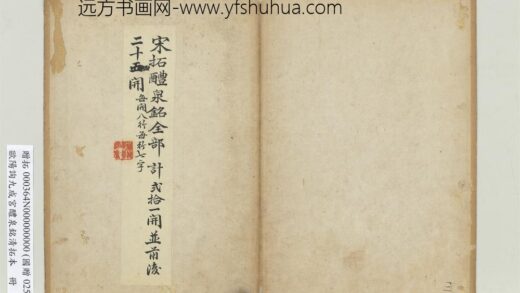 远方书画网-www.yfshuhua.com
宋拓醴泉銘全部計弍拾一開並前後
二十五開
每開八行每行七字
贈拓 000364N000000000 (國贈 025
歐陽詢九成宮醴泉銘清拓本 冊